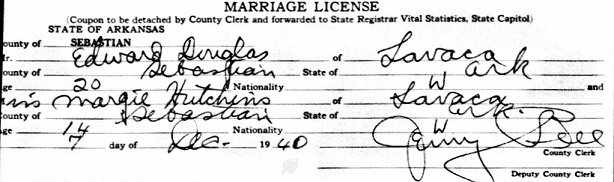 MARRIAGE LICENSE
(Coupon to be detached by County Clerk and forwarded to State Registrar Vital Statistics, State Capitol)
STATE OF ARKANSAS
ounty of SEBASTIAN
r. Edward Douglas of Lavaca
ounty of Sebastian State of Ark
ge 20 Nationality W and
iss Margie Hutchins of Lavaca
ounty of Sebastian State of Ark.
ge 14 Nationality W
7 day of Dec- 1940
County Clerk
Deputy County Clerk